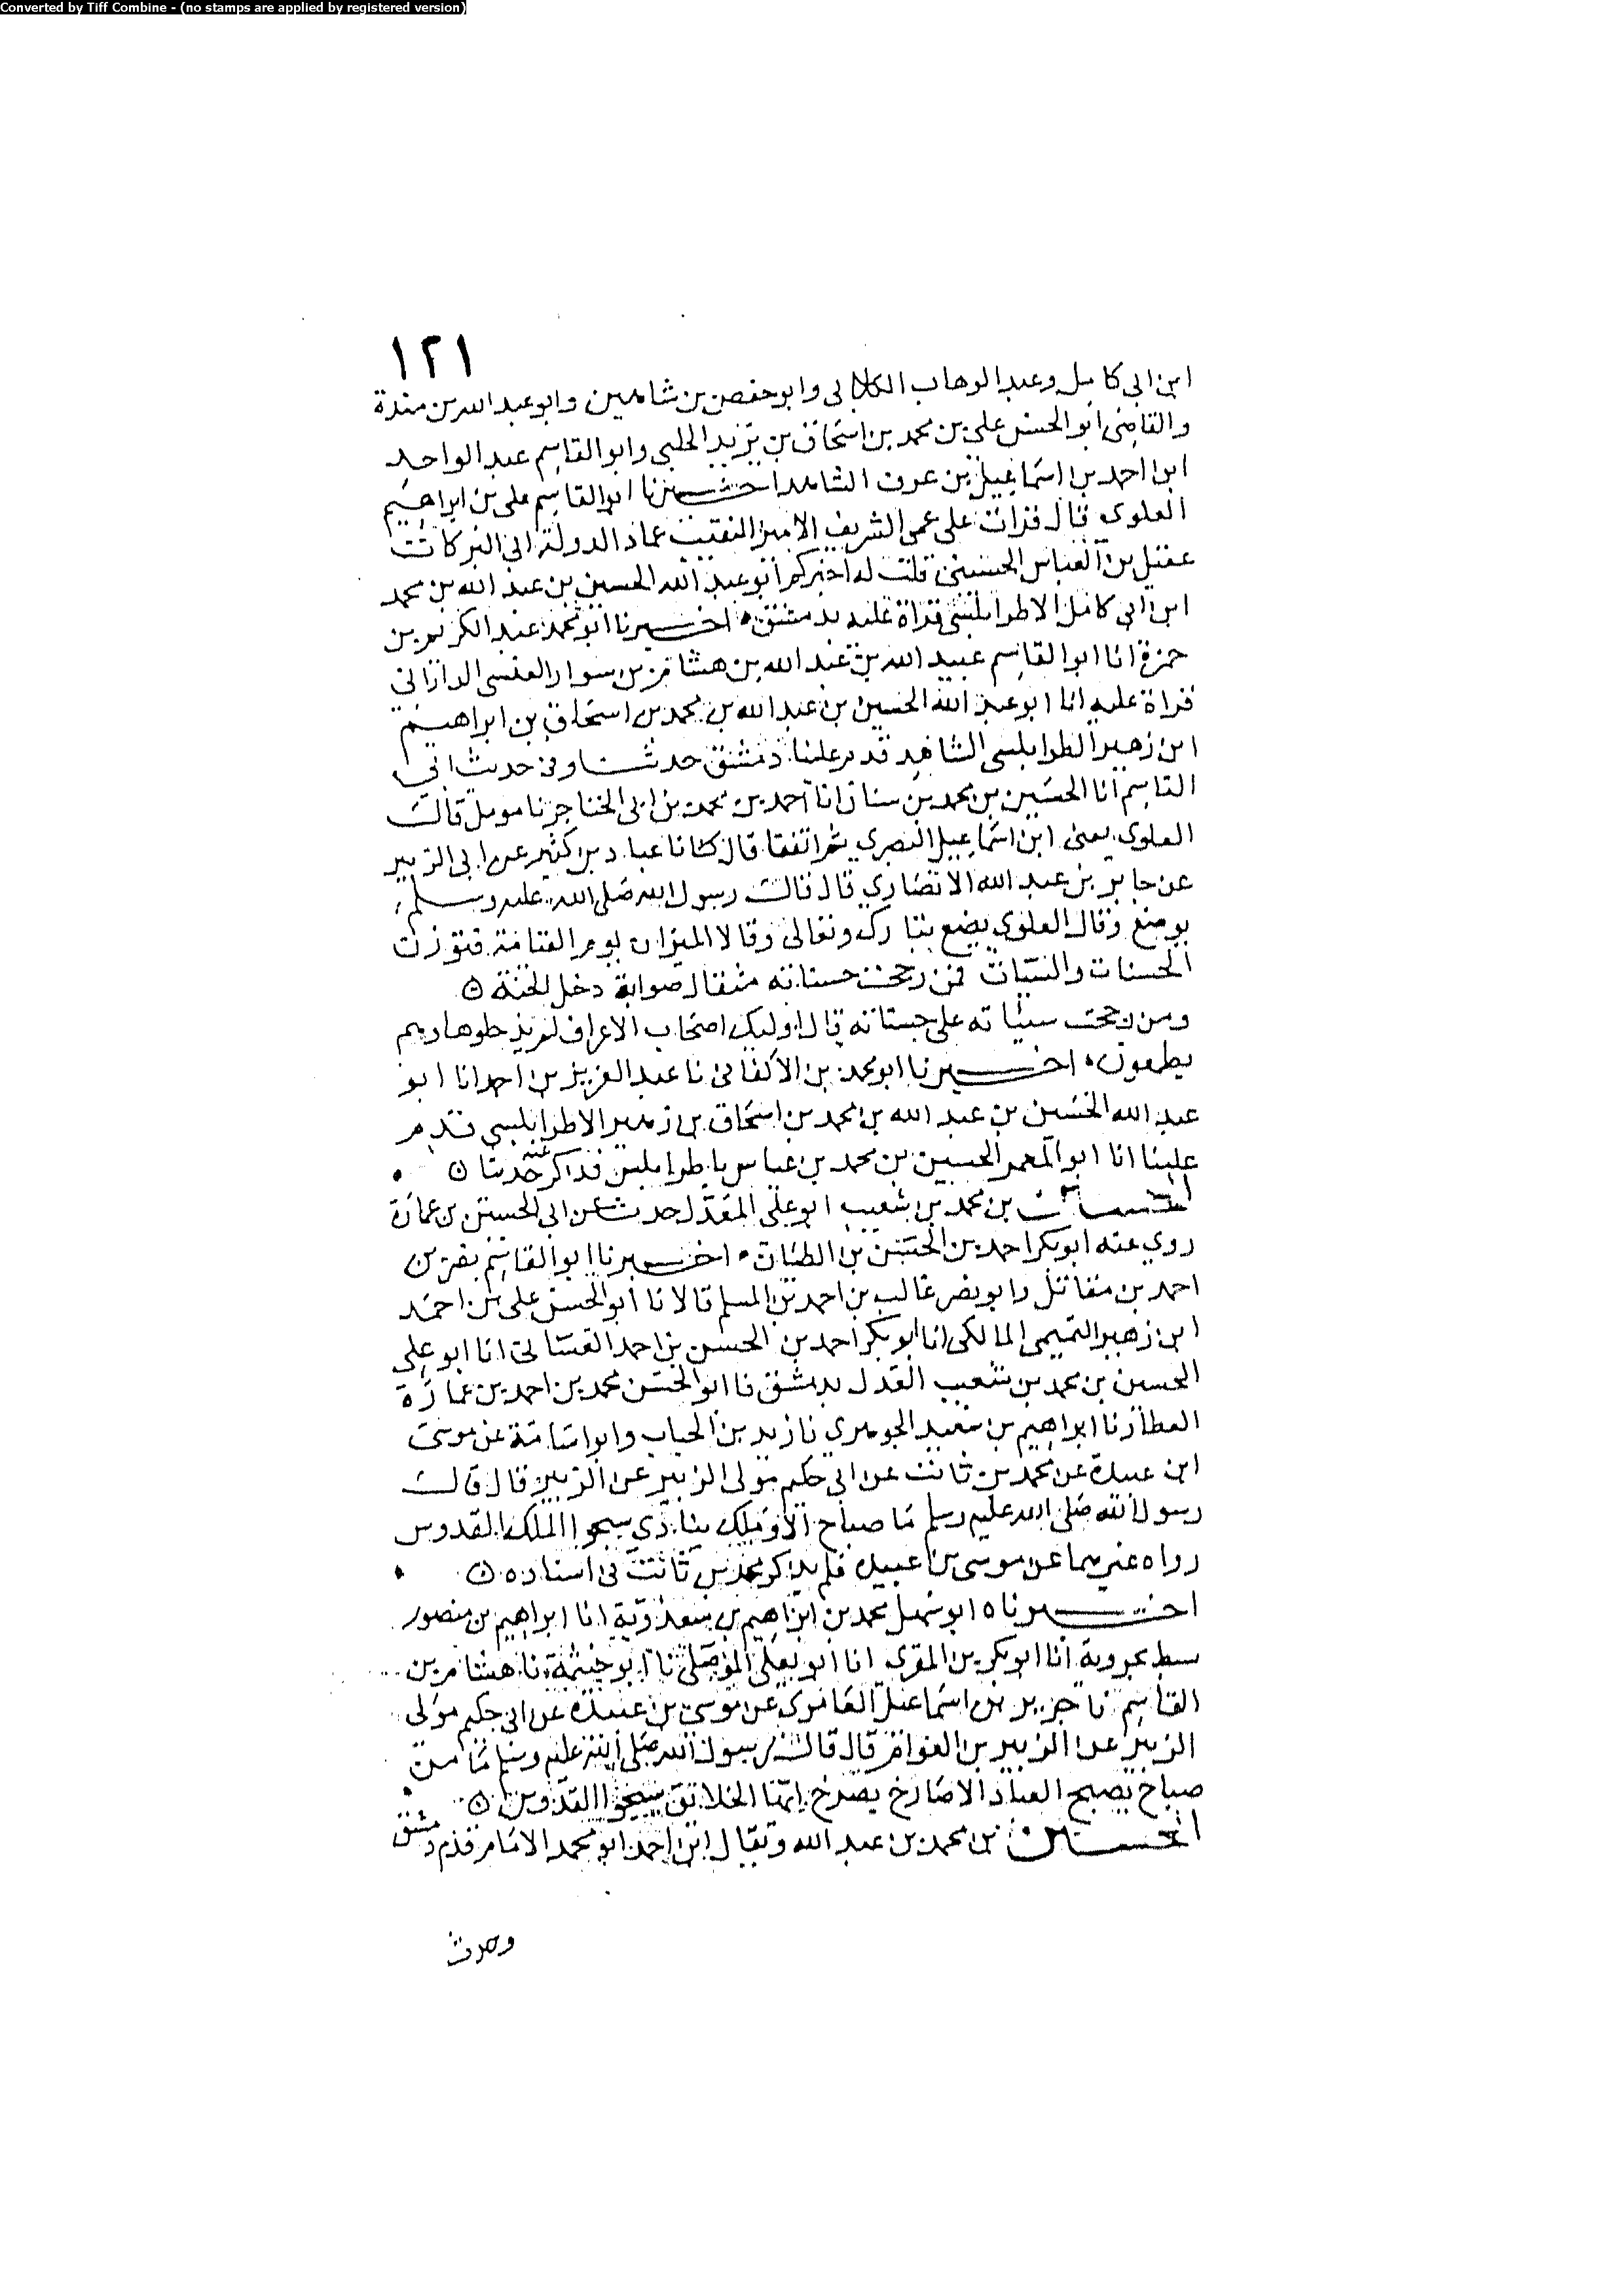 Converted by Tiff Combine - (no stamps are applied by registered version)
١٢١
ابن ابي كامل وعبد الوهاب الكلابي وابو حفص بن شاهين وابو عبد الله بن مندة
والقاضي ابو الحسن علي بن محمد بن اسحاق بن يزيد الحلبي وابو القاسم عبد الواحد
ابن احمد بن اسماعيل بن عوف الشاهد اخبرنا ابو القاسم علي بن ابراهيم
العلوي قال قرات على عمي الشريف الامير النقيب عماد الدولة ابي البركات
عقيل بن العباس الحسيني قلت له اخبركم ابو عبد الله الحسين بن عبد الله بن محمد
ابن ابي كامل الاطرابلسي قراة عليه بدمشق اخبرنا ابو محمد عبد الكريم بن
حمزة انا ابو القاسم عبيد الله بن عبد الله بن هشام بن سوار العنسي الداراني
قراة عليه انا ابو عبد الله الحسين بن عبد الله بن محمد بن اسحاق بن ابراهيم
ابن زهير الطرابلسي الشاهد قدم علينا دمشق حدثنا وفي حديث ابي
القاسم انا الحسين بن محمد بن سنان انا احمد بن محمد بن ابي الخناجر نا مومل قال
العلوي يعني ابن اسماعيل البصري ثم اتفقا قال نا عباد بن كثير عن ابي الزبير
عن جابر بن عبد الله الانصاري قال قال رسول الله صلى الله عليه وسلم
يوضع وقال العلوي يضع تبارك وتعالى وقالا الميزان يوم القيامة فتوزن
الحسنات والسيات فمن رجحت حسناته مثقال صوابة دخل الجنة ٥
ومن رجحت سيئاته على حسناته قال اوليك اصحاب الاعراف لم يدخلوها وهم
يطمعون اخبرنا ابو محمد بن الاكفاني نا عبد العزيز بن احمد انا ابو
عبد الله الحسين بن عبد الله بن محمد بن اسحاق بن زهير الاطرابلسي قدم
علينا انا ابو المعمر الحسين بن محمد بن عباس باطرابلس فذاكر عنه حديثا ٥
الحسين بن محمد بن شعيب ابو علي المعدل حدث عن ابي الحسين بن عمارة
روي عنه ابو بكر احمد بن الحسين بن الطيان اخبرنا ابو القاسم نصر بن
احمد بن مقاتل وابو نصر غالب بن احمد بن المسلم قالا نا ابو الحسن علي بن احمد
ابن زهير التميمي المالكي انا ابو بكر احمد بن الحسن بن احمد الغساني انا ابو علي
الحسين بن محمد بن شعيب العدل بدمشق نا ابو الحسن محمد بن احمد بن عمارة
العطار نا ابراهيم بن سعيد الجوهري نا زيد بن الحباب وابو اسامة عن موسى
ابن عبيدة عن محمد بن ثابت عن ابي حكيم مولى الزبير عن الزبير قال قال
رسول الله صلى الله عليه وسلم ما صباح الا وملك ينادي سبحوا الملك القدوس
رواه غيرهما عن موسى بن عبيدة فلم يذكر محمد بن ثابت في اسناده ٥
اخبرناه ابو سهل محمد بن ابراهيم بن سعدوية انا ابراهيم بن منصور
سبط بحروية انا ابو بكر بن المقرى انا ابو يعلى الموصلي نا ابو خيثمة نا هشام بن
القاسم نا جرير بن اسماعيل العامري عن موسى بن عبيدة عن ابي حكيم مولى
الزبير عن الزبير بن العوام قال قال رسول الله صلى الله عليه وسلم ما من
صباح يصبح العباد الا صارخ يصرخ ايها الخلائق سبحوا القدوس ٥
الحسين بن محمد بن عبد الله ويقال ابن احمد ابو محمد الامام قدم دمشق
وحدث